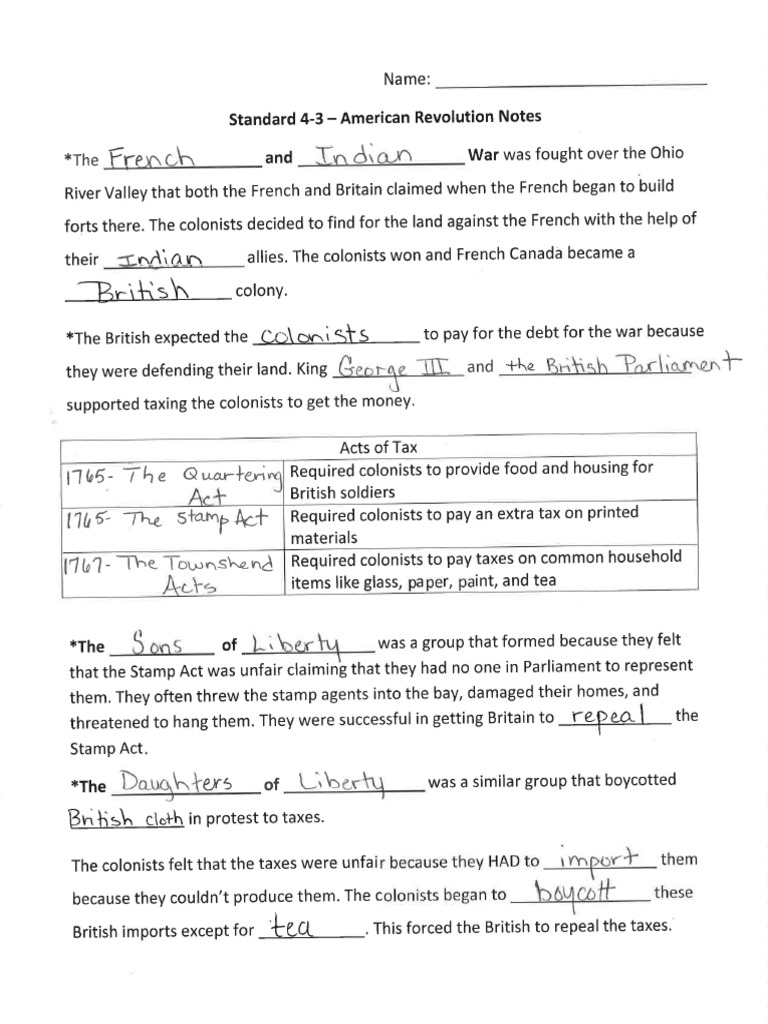 Name:
Standard 4-3 – American Revolution Notes
*The French and Indian War was fought over the Ohio
River Valley that both the French and Britain claimed when the French began to build
forts there. The colonists decided to find for the land against the French with the help of
their Indian allies. The colonists won and French Canada became a
British colony.
*The British expected the colonists to pay for the debt for the war because
they were defending their land. King George III and the British Parliament
supported taxing the colonists to get the money.
Acts of Tax
1765- The Quartering Required colonists to provide food and housing for
Act British soldiers
1765- The Stamp Act Required colonists to pay an extra tax on printed
materials
1767- The Townshend Required colonists to pay taxes on common household
Acts items like glass, paper, paint, and tea
*The Sons of Liberty was a group that formed because they felt
that the Stamp Act was unfair claiming that they had no one in Parliament to represent
them. They often threw the stamp agents into the bay, damaged their homes, and
threatened to hang them. They were successful in getting Britain to repeal the
Stamp Act.
*The Daughters of Liberty was a similar group that boycotted
British cloth in protest to taxes.
The colonists felt that the taxes were unfair because they HAD to import them
because they couldn't produce them. The colonists began to boycott these
British imports except for tea. This forced the British to repeal the taxes.